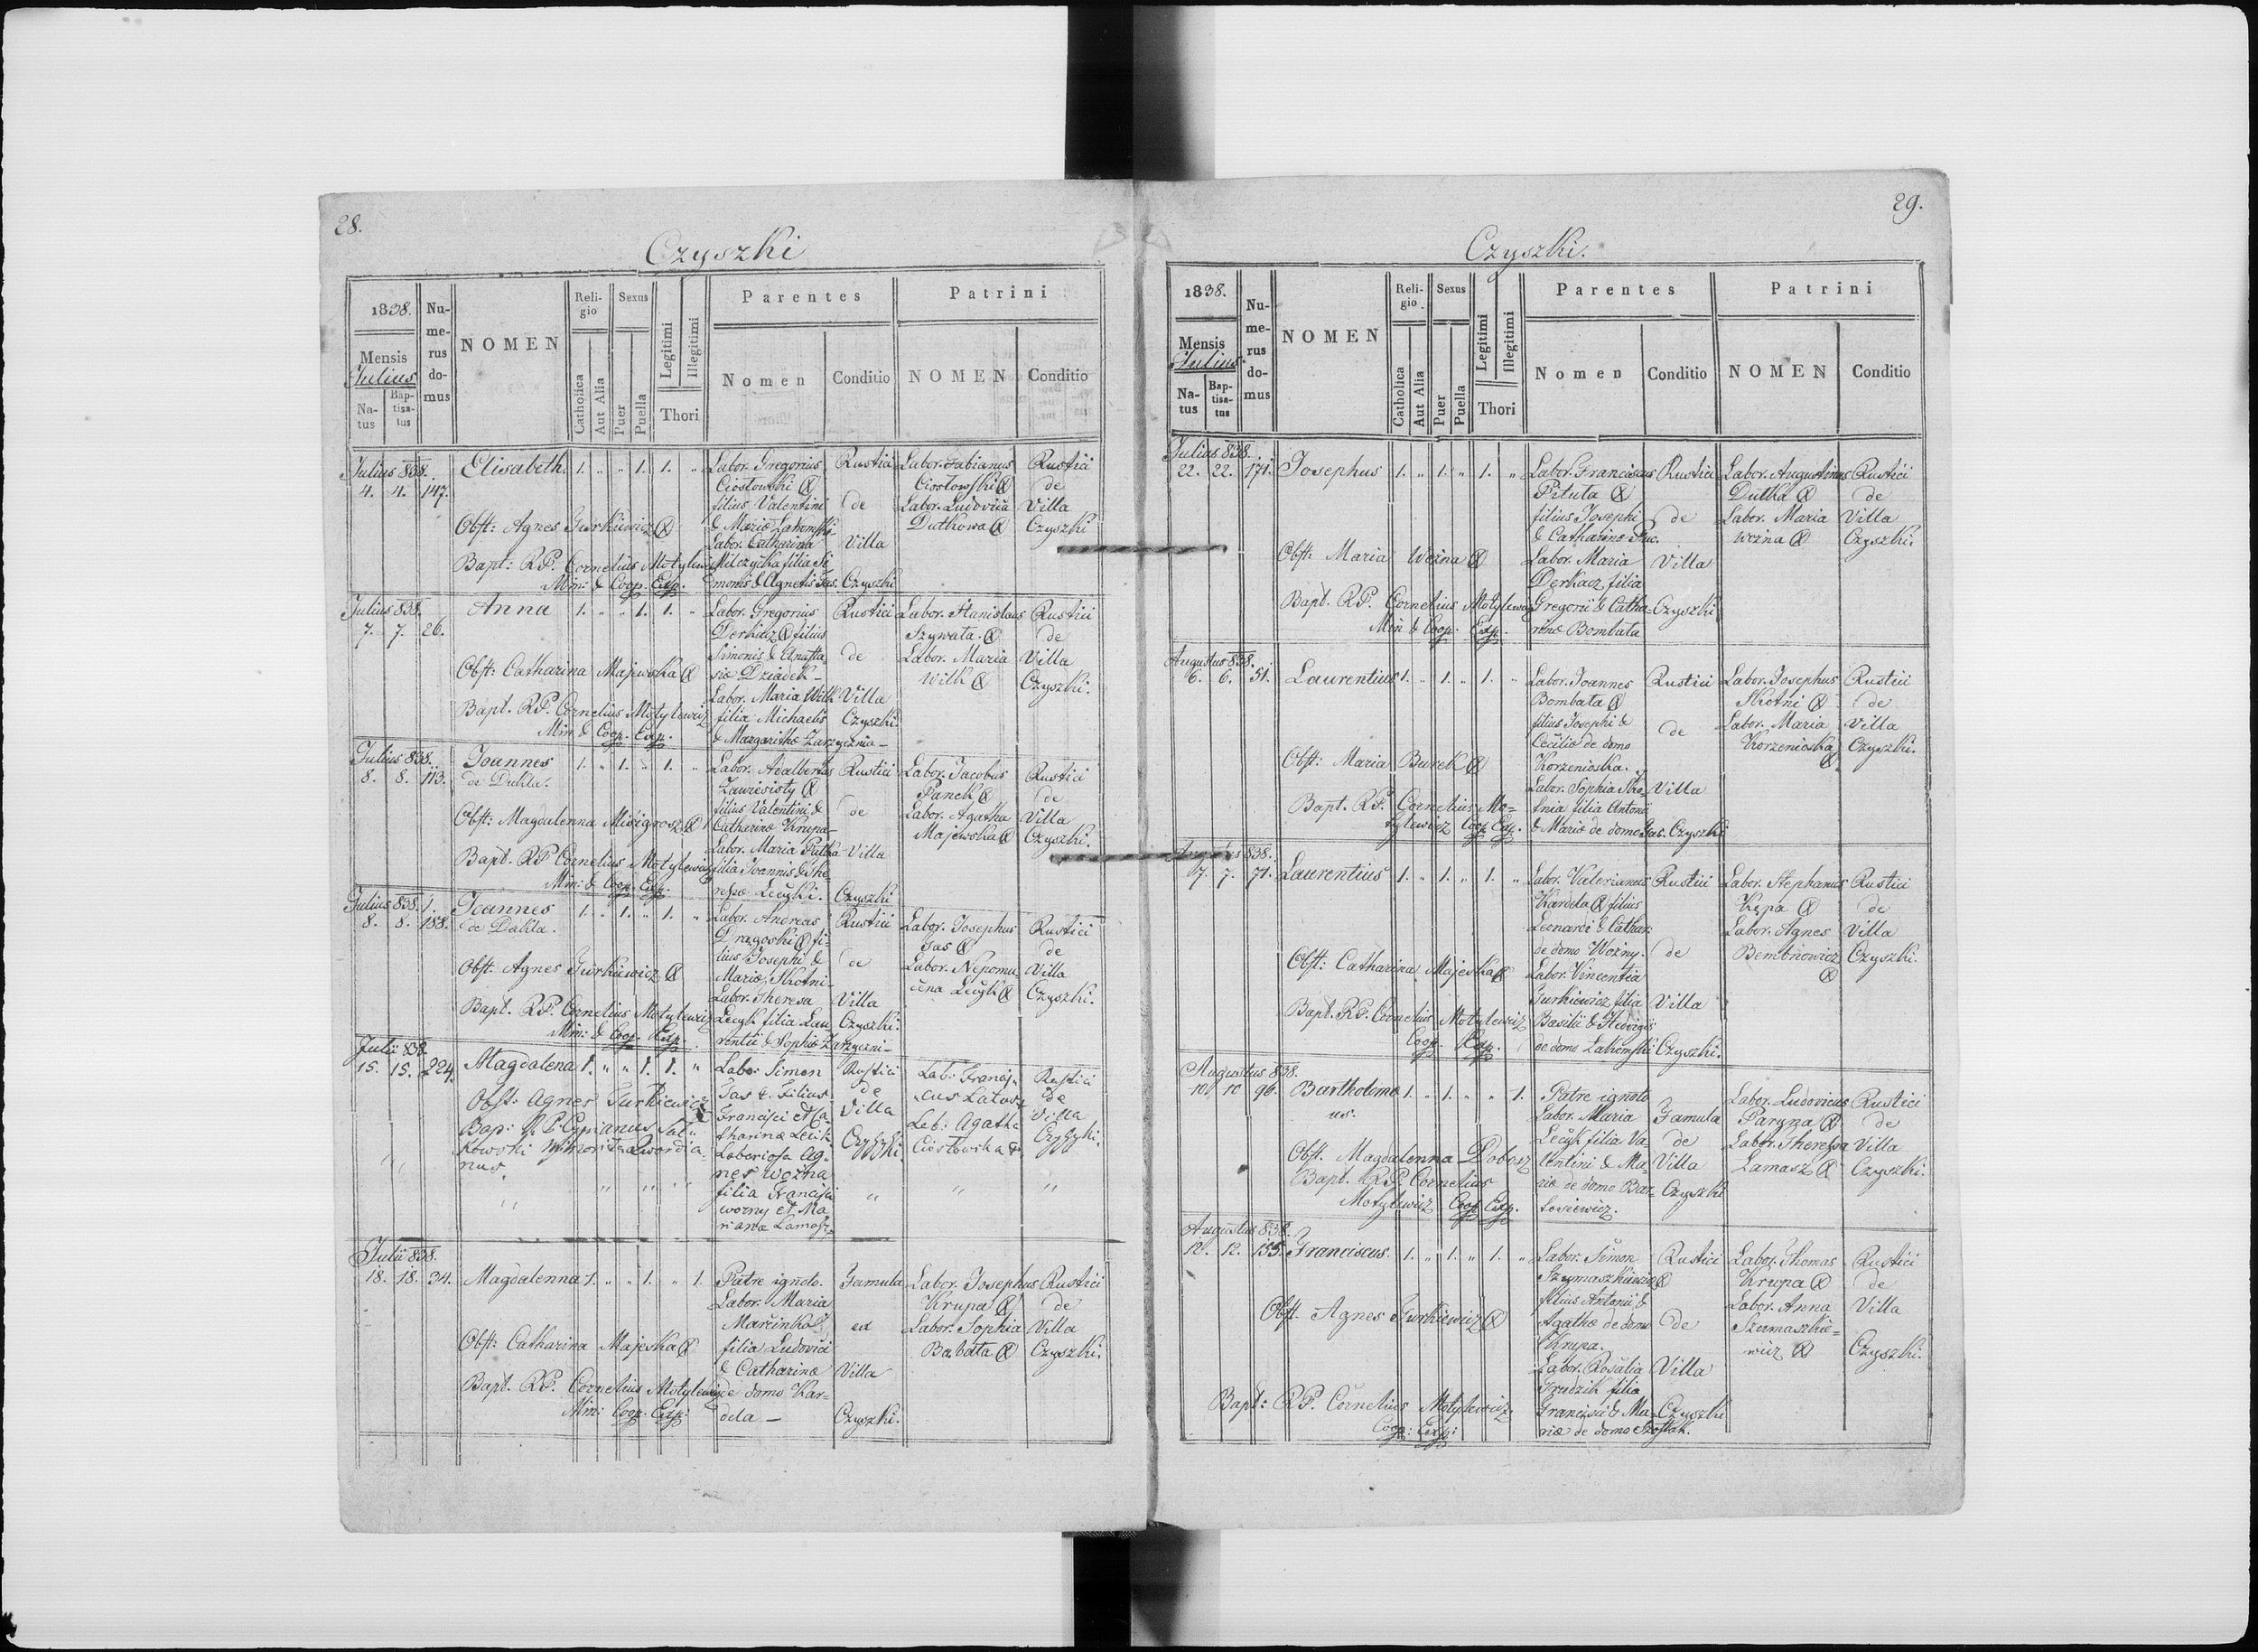 28.
Czyszki
1838.
Mensis
Julius
Na-
tus
Bap-
tisa-
tus
Nu-
me-
rus
do-
mus
NOMEN
Reli-
gio
Catholica
Aut Alia
Sexus
Puer
Puella
Legitimi
Illegitimi
Thori
Parentes
Nomen
Conditio
Patrini
NOMEN
Conditio
Julius 838.
4. 4. 147. Elisabeth. 1. „ „ 1. 1. „
Obst: Agnes Turkiewicz (X)
Bapt: R.P. Cornelius Motylewicz
Min: & Coop. Exp.
Labor. Gregorius
Ciosłowski (X)
filius Valentini
Labor. Catharina
Milczycka filia Si
monis & Agnetis Jas.
Rustici
de
Villa
Czyszki
Labor. Fabianus
Ciosłowski (X)
Labor. Ludovica
Dutkowa (X)
Rustici
de
Villa
Czyszki
Julius 838.
7. 7. 26. Anna 1. „ „ 1. 1. „
Obst: Catharina Majewska (X)
Bapt. R.P. Cornelius Motylewicz
Min & Coop. Exp.
Labor. Gregorius
Derkacz (X) filius
Simonis & Anasta
siæ Dziadek –
Labor. Maria Wilk
filia Michaelis
& Margarithæ
Rustici
de
Villa
Czyszki
Labor. Stanislaus
Szywała. (X)
Labor. Maria
Wilk (X)
Rustici
de
Villa
Czyszki.
Julius 838.
8. 8. 113. Joannes 1. „ 1. „ 1. „
de Dukla.
Obst: Magdalenna
Bapt. R.P. Cornelius Motylewicz
Min: & Coop. Exp.
Labor. Adalbertus
filius Valentini &
Catharinæ Krupa–
Labor. Maria Pałka
filia Joannis & The
resæ Lecyki.
Rustici
de
Villa
Czyszki
Labor. Jacobus
Panek (X)
Labor. Agatha
Majewska (X)
Rustici
de
Villa
Czyszki.
Julius 838.
8. 8. 188. Joannes 1. „ 1. „ 1. „
de Dukla.
Obst: Agnes Turkiewicz (X)
Bapt. R.P. Cornelius Motylewicz
Min: & Coop. Exp.
Labor. Andreas
Dragoski (X) fi-
lius Josephi &
Mariæ Skotni–
Labor. Theresa
Lecyk filia Lau
rentii & Sophiæ
Rustici
de
Villa
Czyszki.
Labor. Josephus
Jas (X)
Labor. Nepomu
cena Lecyk (X)
Rustici
de
Villa
Czyszki.
Julii 838
15. 15. 224. Magdalena 1. „ „ 1. 1. „
Obst: Agnes Turkiewicz
Bap: R.P. Cyprianus
nus
Labo: Simon
Jas + Filius
Francisci et Ca
tharinæ Lecik
Laboriosa Ag
nes Wozna
filia Francisci
wozny et Ma
rianæ Lamasz
Rustici
de
Villa
Czyszki.
Lab: Francis
cus
Lab: Agatha
Ciosłowska +
Rustici
de
Villa
Czyszki.
Julii 838.
18. 18. 34. Magdalenna 1. „ „ 1. „ 1.
Obst: Catharina Majeska (X)
Bapt. R.P. Cornelius Motylewicz
Min: Coop. Exp:
Patre ignoto.
Labor. Maria
Marcinko
filia Ludovici
& Catharinæ
de domo Kar-
dela –
Famula
ex
Villa
Czyszki.
Labor. Josephus
Krupa (X)
Labor. Sophia
Babata (X)
Rustici
de
Villa
Czyszki.
29.
Czyszki.
1838.
Mensis
Julius
Na-
tus
Bap-
tisa-
tus
Nu-
me-
rus
do-
mus
NOMEN
Reli-
gio
Catholica
Aut Alia
Sexus
Puer
Puella
Legitimi
Illegitimi
Thori
Parentes
Nomen
Conditio
Patrini
NOMEN
Conditio
Julius 838.
22. 22. 171. Josephus 1. „ 1. „ 1. „
Obst: Maria Wozna (X)
Bapt. R.P. Cornelius Motylewicz
Min & Coop. Exp.
Labor. Franciscus
Pituta (X)
filius Josephi
& Catharinæ
Labor. Maria
Derkacz filia
Gregorii & Catha-
rinæ Bombata
Rustici
de
Villa
Czyszki
Labor. Augustinus
Dutka (X)
Labor. Maria
Wozna (X)
Rustici
de
Villa
Czyszki.
Augustus 838.
6. 6. 51. Laurentius 1. „ 1. „ 1. „
Obst: Maria Burek (X)
Bapt. R.P. Cornelius Mo=
tylewicz Coop Exp.
Labor. Joannes
Bombata (X)
filius Josephi &
Cecilia de domo
Korzenioska.
Labor. Sophia Sko=
tnia filia Antonii
& Mariæ de domo Jas.
Rustici
de
Villa
Czyszki
Labor. Josephus
Skotni (X)
Labor. Maria
Korzenioska
(X)
Rustici
de
Villa
Czyszki.
838.
7. 7. 71. Laurentius 1. „ 1. „ 1. „
Obst: Catharina Majeska (X)
Bapt. R.P. Cornelius Motylewicz
Coop. Exp.
Labor. Valerianus
Kardela (X) filius
Leonardi & Cathar:
de domo Wozny.
Labor. Vincentia
Turkiewicz filia
Basilii & Hedvigis
de domo Lahomski
Rustici
de
Villa
Czyszki.
Labor. Stephanus
Kępa (X)
Labor. Agnes
Bembnowicz
(X)
Rustici
de
Villa
Czyszki.
Augustus 838.
10 10 96. Bartholomæ 1. „ 1. „ „ 1.
us.
Obst: Magdalenna Dobosz
Bapt. R.P. Cornelius
Motylewicz Coop Exp.
Patre ignoto
Labor. Maria
Lecyk filia Va
lentini & Ma-
riæ de domo Bar-
Famula
de
Villa
Czyszki
Labor. Ludovicus
Paryna (X)
Labor. Theressa
Lamasz (X)
Rustici
de
Villa
Czyszki.
Augustus 838.
12. 12. 155. Franciscus. 1. „ 1. „ 1. „
Obst. Agnes Turkiewicz (X)
Bapt: R.P. Cornelius Motylewicz.
Coop: Exp:
Labor. Simon
Szymaszkiewicz (X)
filius Antonii &
Agathæ de domo
Krupa.
Labor. Rosalia
Grudzik filia
Francisci & Ma-
riæ de domo Szostak.
Rustici
de
Villa
Czyszki
Labor. Thomas
Krupa (X)
Labor. Anna
Szemaszkie=
wicz (X)
Rustici
de
Villa
Czyszki.